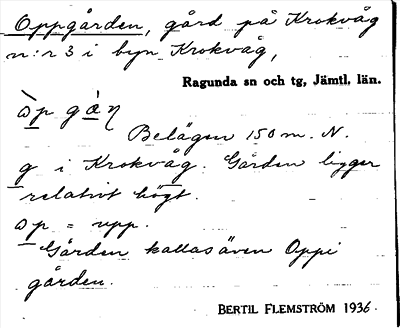 Oppgården, gård på Krokvåg
n:r 3 i byn Krokvåg,
Ragunda sn och tg, Jämtl. län.
Belägen 150 m. N.
g i Krokvåg. Gården ligger
relativt högt.
op = upp.
Gården kallas även Oppi
gården.
BERTIL FLEMSTRÖM 1936.